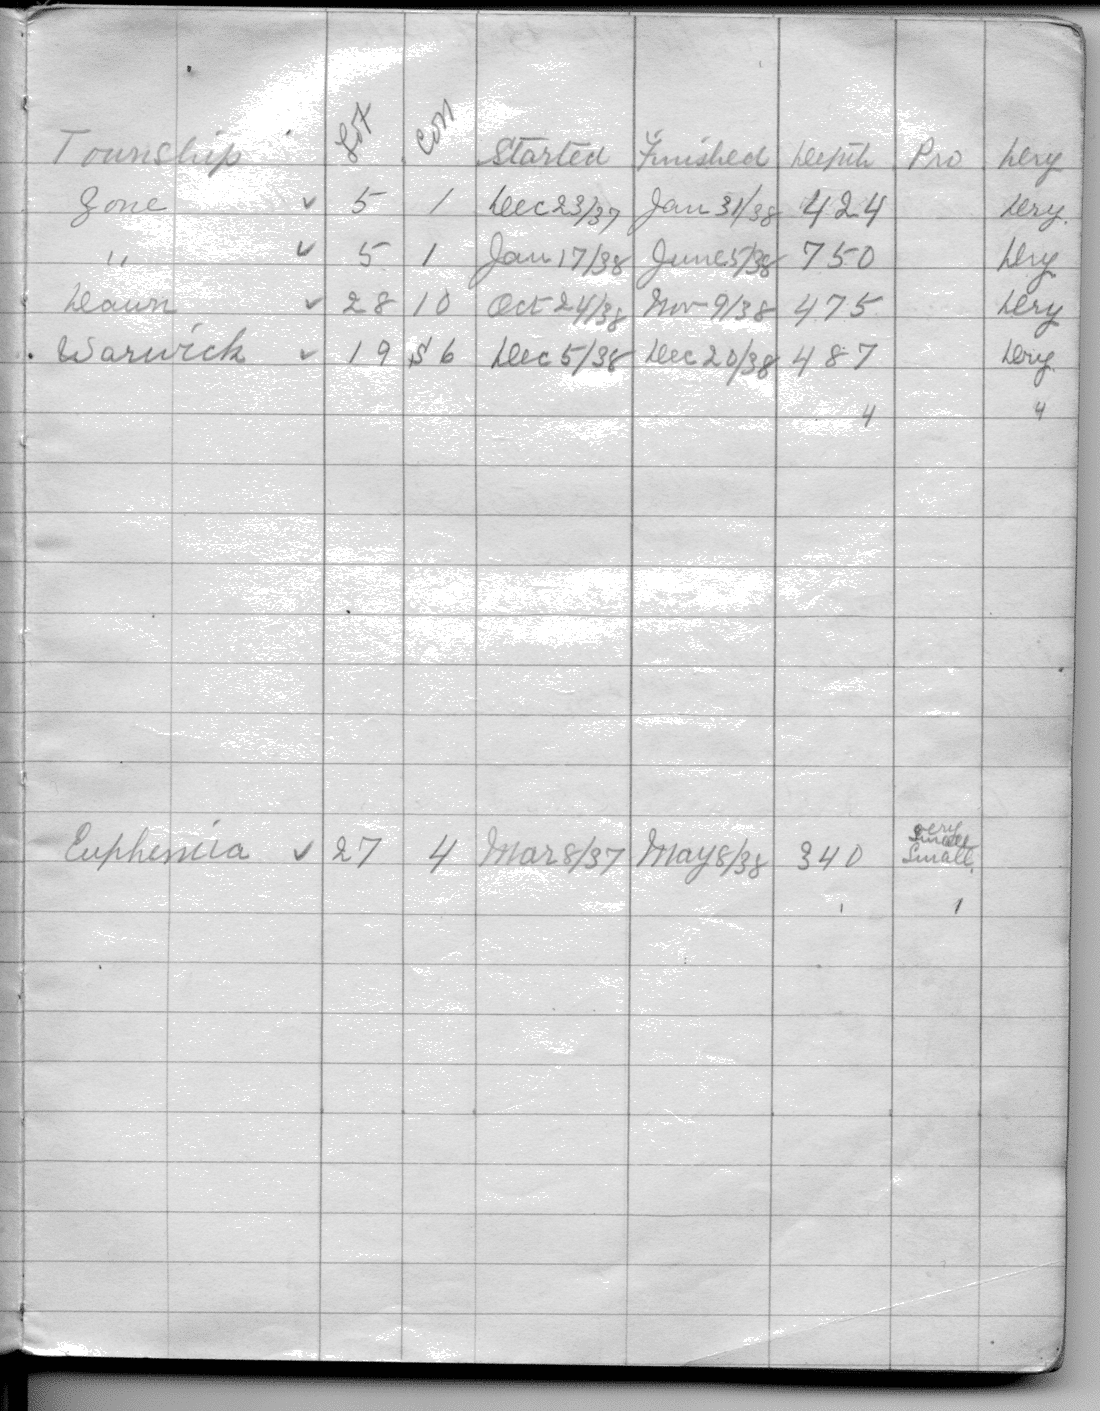 Township Lot Con Started Finished Depth Pro Dry
Zone ✓ 5 1 Dec 23/37 Jan 31/38 424 Dry.
" ✓ 5 1 Jan 17/38 June 5/38 750 Dry
Dawn ✓ 28 10 Oct 24/38 Nov 9/38 475 Dry
Warwick ✓ 19 S 6 Dec 5/38 Dec 20/38 487 Dry.
4 4
Euphemia ✓ 27 4 Mar 8/37 May 8/38 340 very
Small.
1 1